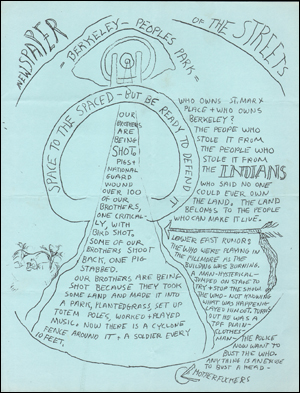 NEWSPAPER OF THE STREETS
- BERKELEY - PEOPLES PARK -
SPACE TO THE SPACED - BUT BE READY TO DEFEND IT
OUR
BROTHERS
ARE
BEING
SHOT.
PIGS +
NATIONAL
GUARD
WOUND
OVER 100
OF OUR
BROTHERS,
ONE CRITICAL-
LY, WITH
BIRD SHOT.
SOME OF OUR
BROTHERS SHOOT
BACK, ONE PIG
STABBED.
OUR BROTHERS, ARE BEING
SHOT BECAUSE THEY TOOK
SOME LAND AND MADE IT INTO
A PARK, PLANTED GRASS, SET UP
TOTEM POLES, WORKED + PLAYED
MUSIC. NOW THERE IS A CYCLONE
FENCE AROUND IT + A SOLDIER EVERY
10 FEET.
WHO OWNS ST. MARX
PLACE + WHO OWNS
BERKELEY?
THE PEOPLE WHO
STOLE IT FROM
THE PEOPLE WHO
STOLE IT FROM
THE INDIANS
WHO SAID NO ONE
COULD EVER OWN
THE LAND. THE LAND
BELONGS TO THE PEOPLE
WHO CAN MAKE IT LIVE.
LOWER EAST RUMORS
THE WHO WERE PLAYING IN
THE FILLMORE AS THE
BUILDING WAS BURNING.
A MAN - HYSTERICAL -
JUMPED ON STAGE TO
TRY + STOP THE SHOW
THE WHO - NOT KNOWING
WHAT WAS HAPPENING
OUT HE WAS A
TPF PLAIN-
CLOTHES-
MAN - THE POLICE
NOW WANT TO
BUST THE WHO.
ANYTHING IS AN EXCUSE
TO BUST A HEAD -
MOTHERFUCKERS